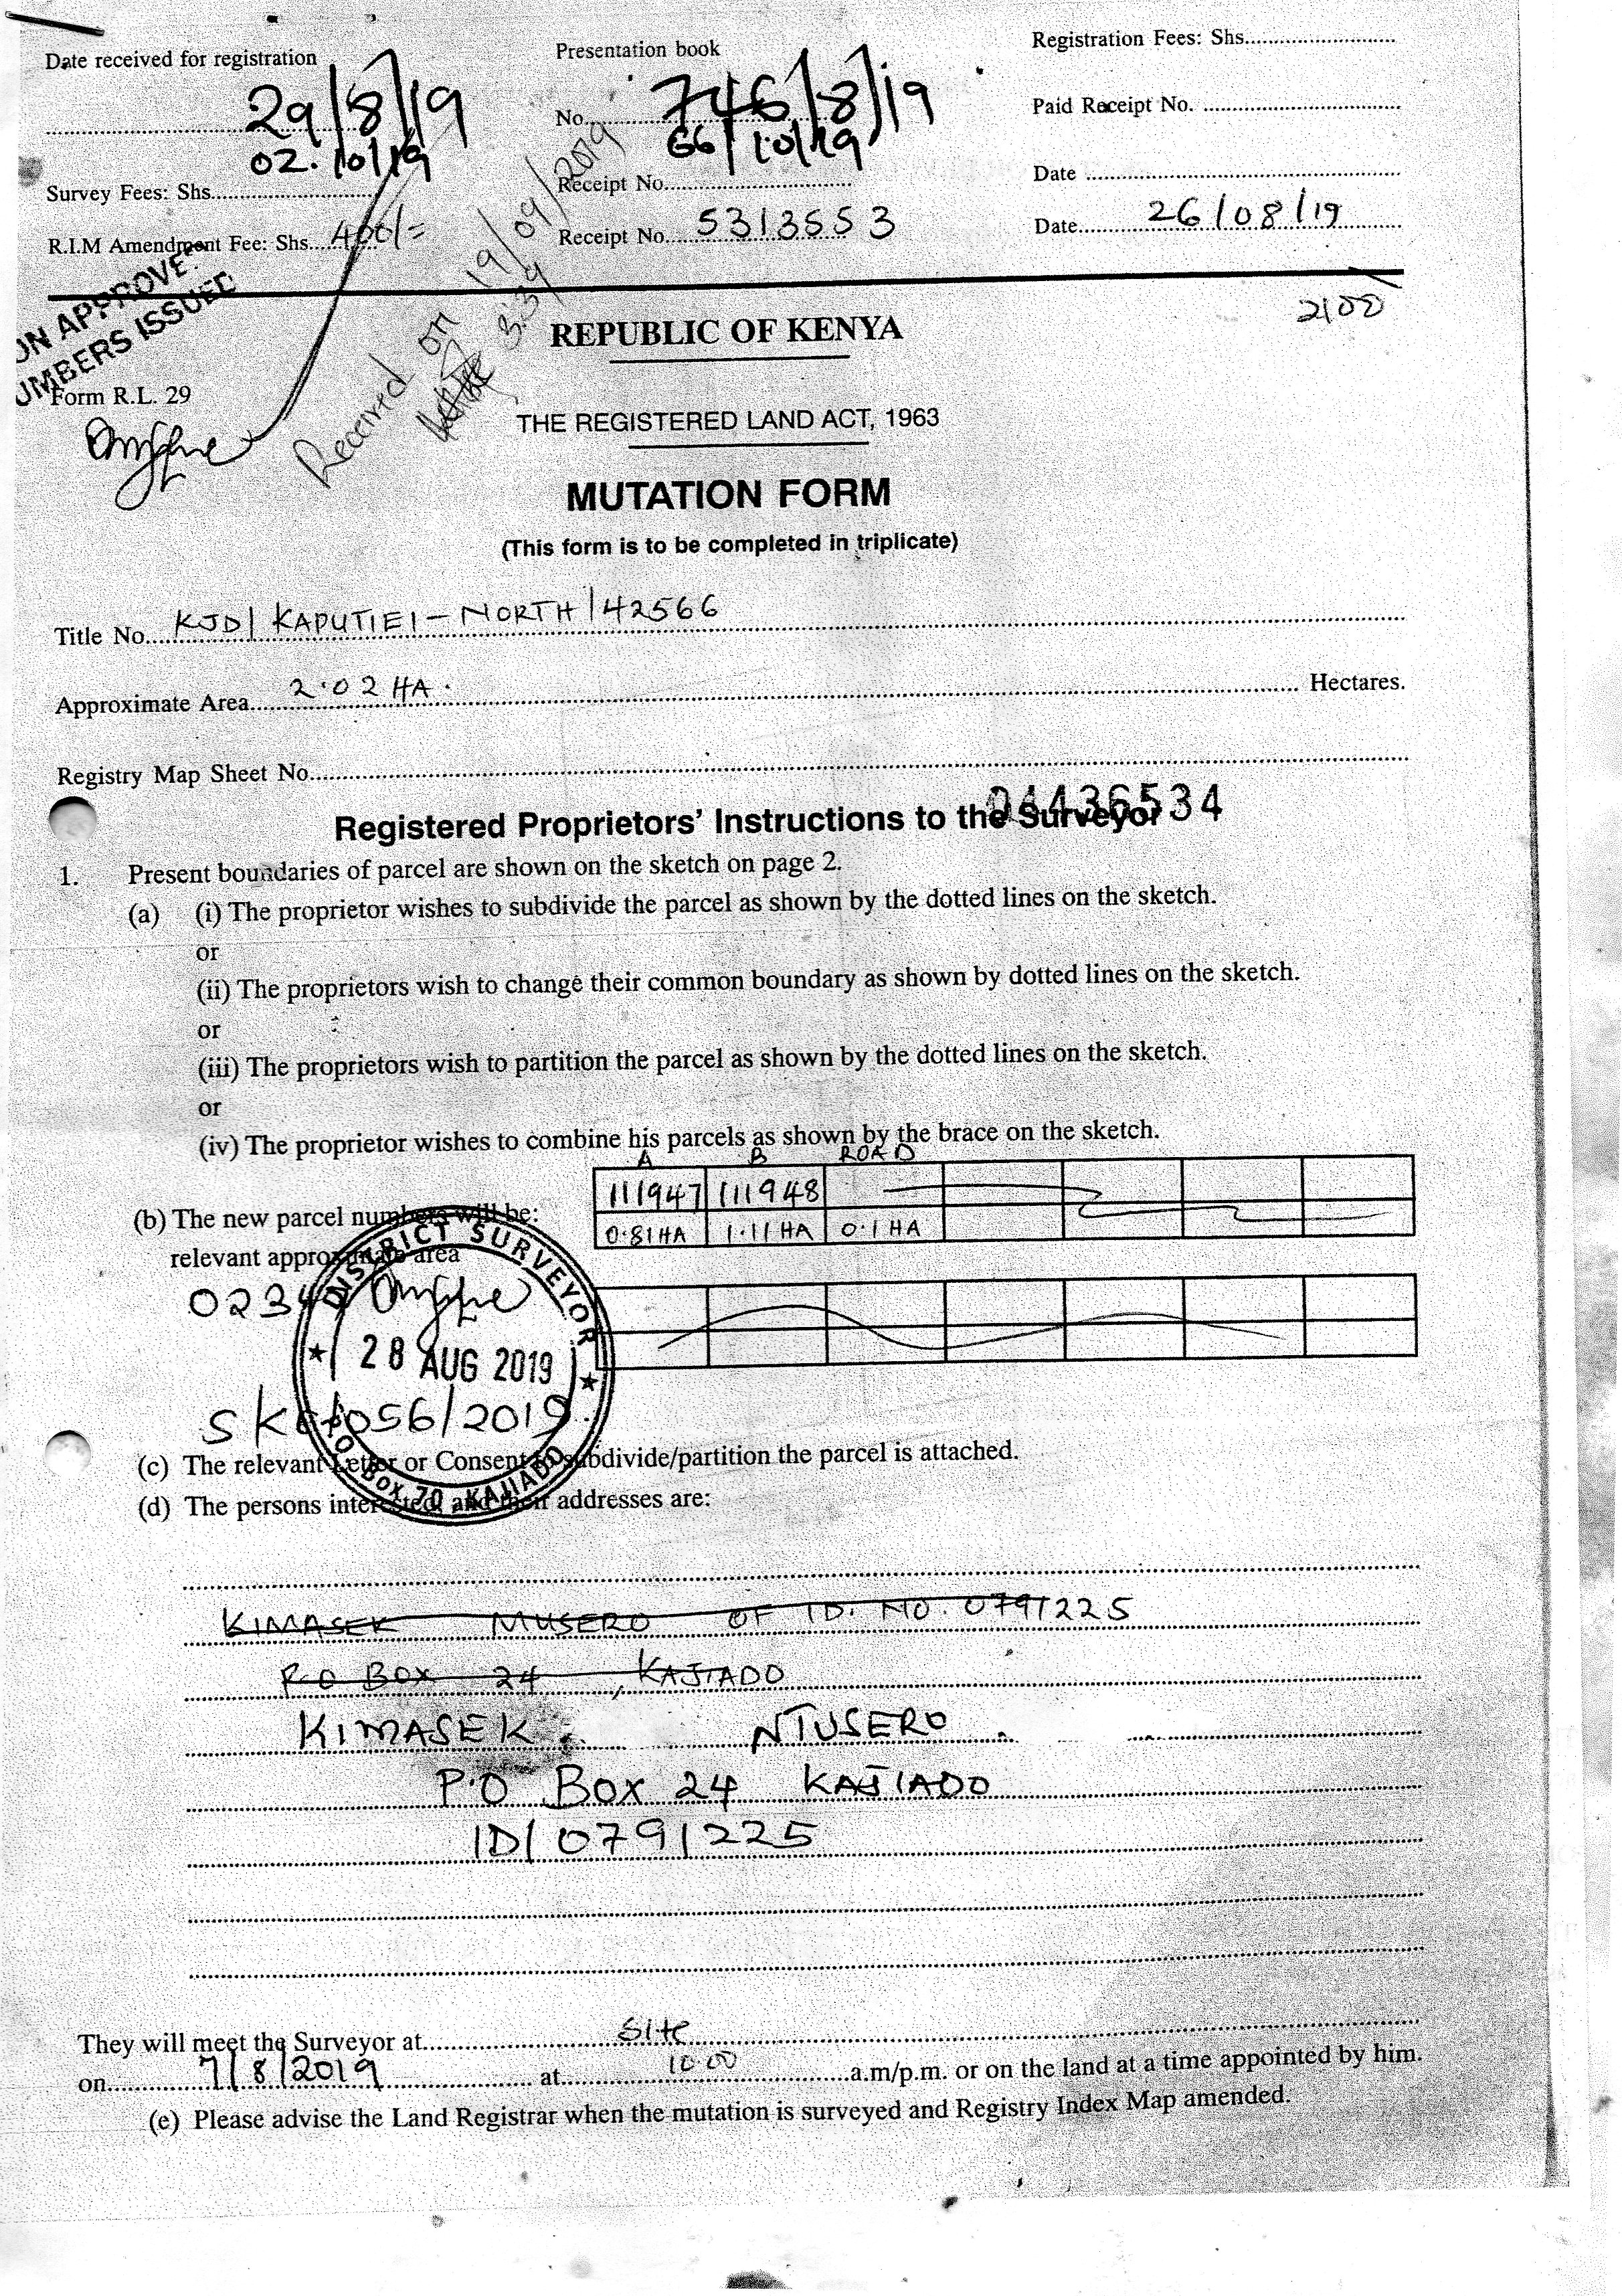 Date received for registration
29/8/19
02.10/19
Presentation book
No. 746/8/19
66/10/19
Registration Fees: Shs.
Paid Receipt No.
Survey Fees: Shs.
Receipt No.
Date
R.I.M Amendment Fee: Shs. 400/=
Receipt No. 5313553
Date 26/08/19
2100
ON APPROVE
UMBERS ISSUED
Received on 19/09/2019
3:39
REPUBLIC OF KENYA
Form R.L. 29
THE REGISTERED LAND ACT, 1963
MUTATION FORM
(This form is to be completed in triplicate)
Title No. KJD/ KAPUTIEI - NORTH/42566
Approximate Area 2.02 HA. Hectares.
Registry Map Sheet No.
04436534
Registered Proprietors' Instructions to the Surveyor
1. Present boundaries of parcel are shown on the sketch on page 2.
(a) (i) The proprietor wishes to subdivide the parcel as shown by the dotted lines on the sketch.
or
(ii) The proprietors wish to change their common boundary as shown by dotted lines on the sketch.
or
(iii) The proprietors wish to partition the parcel as shown by the dotted lines on the sketch.
or
(iv) The proprietor wishes to combine his parcels as shown by the brace on the sketch.
A B ROAD
(b) The new parcel numbers will be: 111947 111948
relevant approximate area 0.81HA 1.11 HA 0.1 HA
DISTRICT SURVEYOR
28 AUG 2019
P.O. Box 70, KAJIADO
(c) The relevant Letter or Consent to subdivide/partition the parcel is attached.
(d) The persons interested and their addresses are:
KIMASEK MUSERO OF ID. NO. 0791225
P.O BOX 24, KAJIADO
KIMASEK NTUSERO
P.O Box 24 KAJIADO
ID/ 0791225
They will meet the Surveyor at Site
on 7/8/2019 at 10.00 a.m/p.m. or on the land at a time appointed by him.
(e) Please advise the Land Registrar when the mutation is surveyed and Registry Index Map amended.